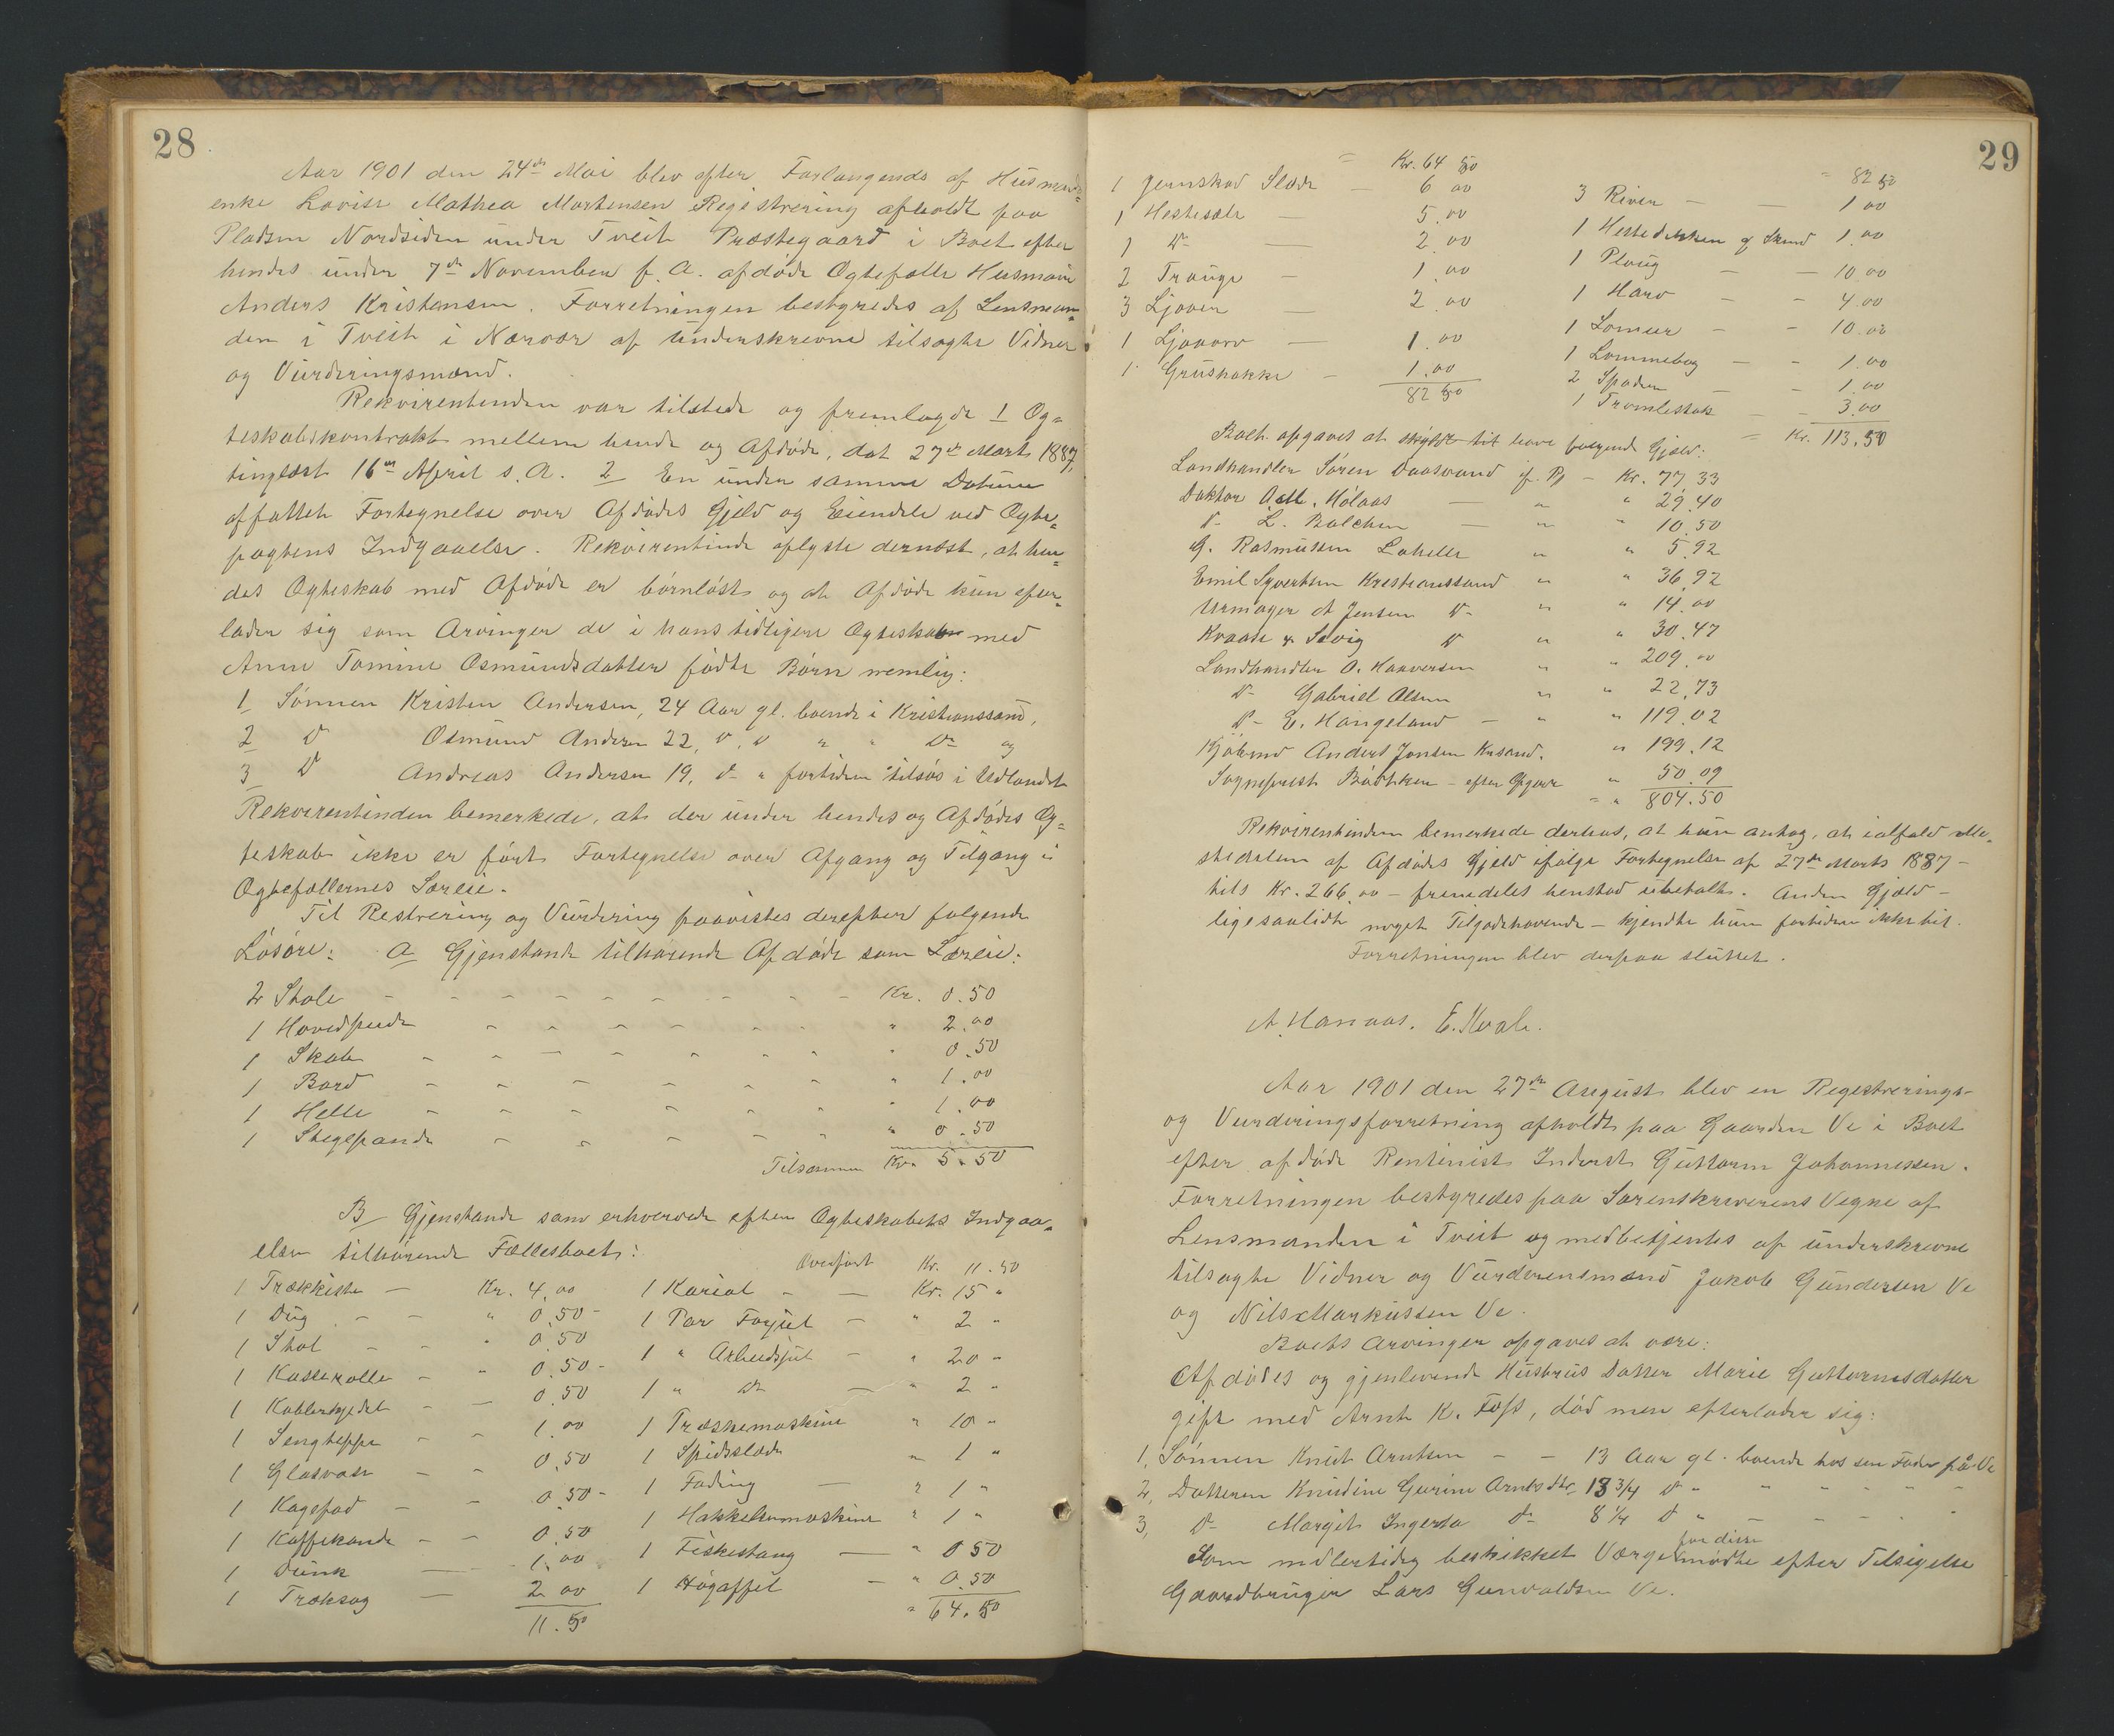 28
Aar 1901 den 24de Mai blev efter Forlangende af Husmands=
enke Lovise Mathea Mortensen Registrering afholdt paa
Pladsen Nordsiden under Tveit Præstegaard i Boet efter
hendes under 7de November f. A. afdøde Ægtefælle Husmann
Anders Kristensen. Forretningen bestyredes af Lensman=
den i Tveit i Nærvær af underskrevne tilsagte Vidner
og Vurderingsmænd.
Rekvirentinden var tilstede og fremlagde 1 Æg=
teskabskontrakt mellem hende og Afdøde, dat 27de Marts 1887,
tinglæst 16de April s. A. 2 En under samme Datum
affattet Fortegnelse over Afdødes Gjeld og Eiendele ved Ægte=
pagtens Indgaaelse. Rekvirentinde oplyste dernæst, at hen=
des Ægteskab med Afdøde er børnløst og at Afdøde kun efter=
lader sig som Arvinger de i hans tidligere Ægteskab med
Anne Tomine Osmundsdatter fødte Børn nemlig:
1 Sønnen Kristen Andersen, 24 Aar gl. boende i Kristianssand,
2 D Osmund Andersen 22, D. D " " Do og
3 D Andreas Andersen 19, D " fortiden tilsøs i Udlandet
Rekvirentinden bemerkede, at der under hendes og Afdødes Æg=
teskab ikke er ført Fortegnelse over Afgang og Tilgang i
Ægtefællernes Særeie.
Til Restrering og Vurdering paavistes derefter følgende
Løsøre: A Gjenstande tilhørende Afdøde som Særeie:
2 Stole - Kr. 0.50
1 Hovedpude " 2.00
1 Skab " 0.50
1 Bord " 1.00
1 Helle " 1.00
1 Stegepande " 0.50
Tilsammen Kr. 5.50
B Gjenstande som erhvervede efter Ægteskabets Indgaa=
else tilhørende Fællesboet:
Overført Kr. 11.50
1 Trækkiste - Kr. 4.00 1 Kariol - - Kr. 15 "
1 Dug - - " 0.50 - 1 Par Foringl - " 2 "
1 Stol - - " 0.50 1 " Arbeidsjul - " 20 "
1 Kasserolle - " 0.50 - 1 " Do - " 2 "
1 Kobberkjedel - - 0.50 1 Træskemaskine " 10 "
1 Sengteppe - - 1.00 1 Spidsslæde " 1 "
1 Glasvase - - 0.50 1 Fading - " 1 "
1 Kagefad - - 0.50 - 1 Hakkelsmaskine " 1 "
1 Kaffekande - - 0.50 1 Fiskestang - " 0 50
1 Dunk - 1.00 1 Høgaffel - " 0.50
1 Træksag - 2 00 " 64.50
11.50
29
= Kr. 64 50
1 Jernskod Slæde - 6 00
1 Hestesæle - 5.00
1 Do - 2 00
2 Trauge - 1 00
3 Ljaaer - 2.00
1 Ljaaorv - 1.00
1 Grushakke - 1.00
82 50
= 82 50
3 River - - 1 00
1 Hestedækken af Skind 1.00
1 Ploug - - 10 00
1 Harv - - 4.00
1 Lomeur - - 10.00
1 Lommebog - - 1.00
2 Spader - - 1.00
1 Tromlestok - - 3.00
= Kr. 113.50
Boet opgaves at skylde til have følgende Gjæld:
Landhandler Søren Daasvand if. Rg - Kr. 77,33
Doktor Ad. Mølaas - " " 29.40
D- L. Balchen - " " 10.50
G. Rasmussen Lahelle " " 5.92
Emil Syvertsen Kristianssand " " 36,92
Urmager A Jensen D- " " 14.00
Kraase & Sevig D " " 30.47
Landhandler O. Haaversen " " 209.00
D- Gabriel Olsen " " 22,73
D- E. Hangeland - " " 119.02
Kjøbmd Anders Jonsen Krsand. " 199.12
Sogneprest Bødtker - efter Opgave " 50.09
= " 804.50
Rekvirentinden bemerkede derhos, at hun antog, at ialfald ste=
stedelen af Afdødes Gjeld ifølge Fortegnelse af 27de Marts 1887 -
tils Kr. 266.00 - fremdeles henstod ubetalt. Anden Gjæld -
ligesaalidt noget Tilgodehavende - kjendte hun fortiden ikke til.
Forretningen blev derpaa sluttet.
A. Hanaas. E. Kvale.
Aar 1901 den 27de August blev en Registrerings-
og Vurderingsforretning afholdt paa Gaarden Ve i Boet
efter afdøde Rentenist Inderst Guttorm Johannessen.
Forretningen bestyredes paa Sorenskriverens Vegne af
Lensmanden i Tveit og medbetjentes af underskrevne
tilsagte Vidner og Vurderensmænd Jakob Gundersen Ve
og Nils Markussen Ve.
Boets Arvinger opgaves at være:
Afdødes og gjenlevende Hustrus Datter Marie Guttormsdatter
gift med Arnt K. Foss, død men efterlader sig:
1, Sønnen Knut Arntsen - - 13 Aar gl. boende hos sen Fader på Ve
2, Datteren Knudine Gurine Arntsdtr 13 3/4 D " " " " "
3, D- Margit Ingerda D- 8 1/4 D " - - - "
Som midlertidig beskikket Værge for disse mødte efter Tilsigelse
Gaardbruger Lars Gunvaldsen Ve.